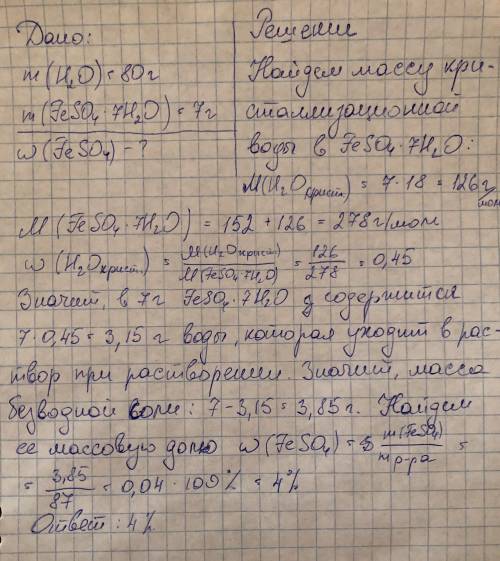 Дано:
m(H₂O) = 80г
m(FeSO₄·7H₂O) = 7г
ω(FeSO₄) - ?
Решение
Найдем массу кри-
сталлизационной
воды в FeSO₄·7H₂O:
M(H₂Oкрист) = 7·18 = 126 г/моль
M(FeSO₄·7H₂O) = 152 + 126 = 278 г/моль
ω(H₂Oкрист.) = M(H₂Oкрист)/M(FeSO₄·7H₂O) = 126/278 = 0,45
Значит, в 7г FeSO₄·7H₂O содержится
7·0,45 = 3,15 г воды, которая уходит в рас-
твор при растворении. Значит, масса
безводной соли: 7 - 3,15 = 3,85г. Найдем
ее массовую долю ω(FeSO₄) = m(FeSO₄)/mр-ра =
= 3,85/87 = 0,04·100% = 4%
Ответ: 4%